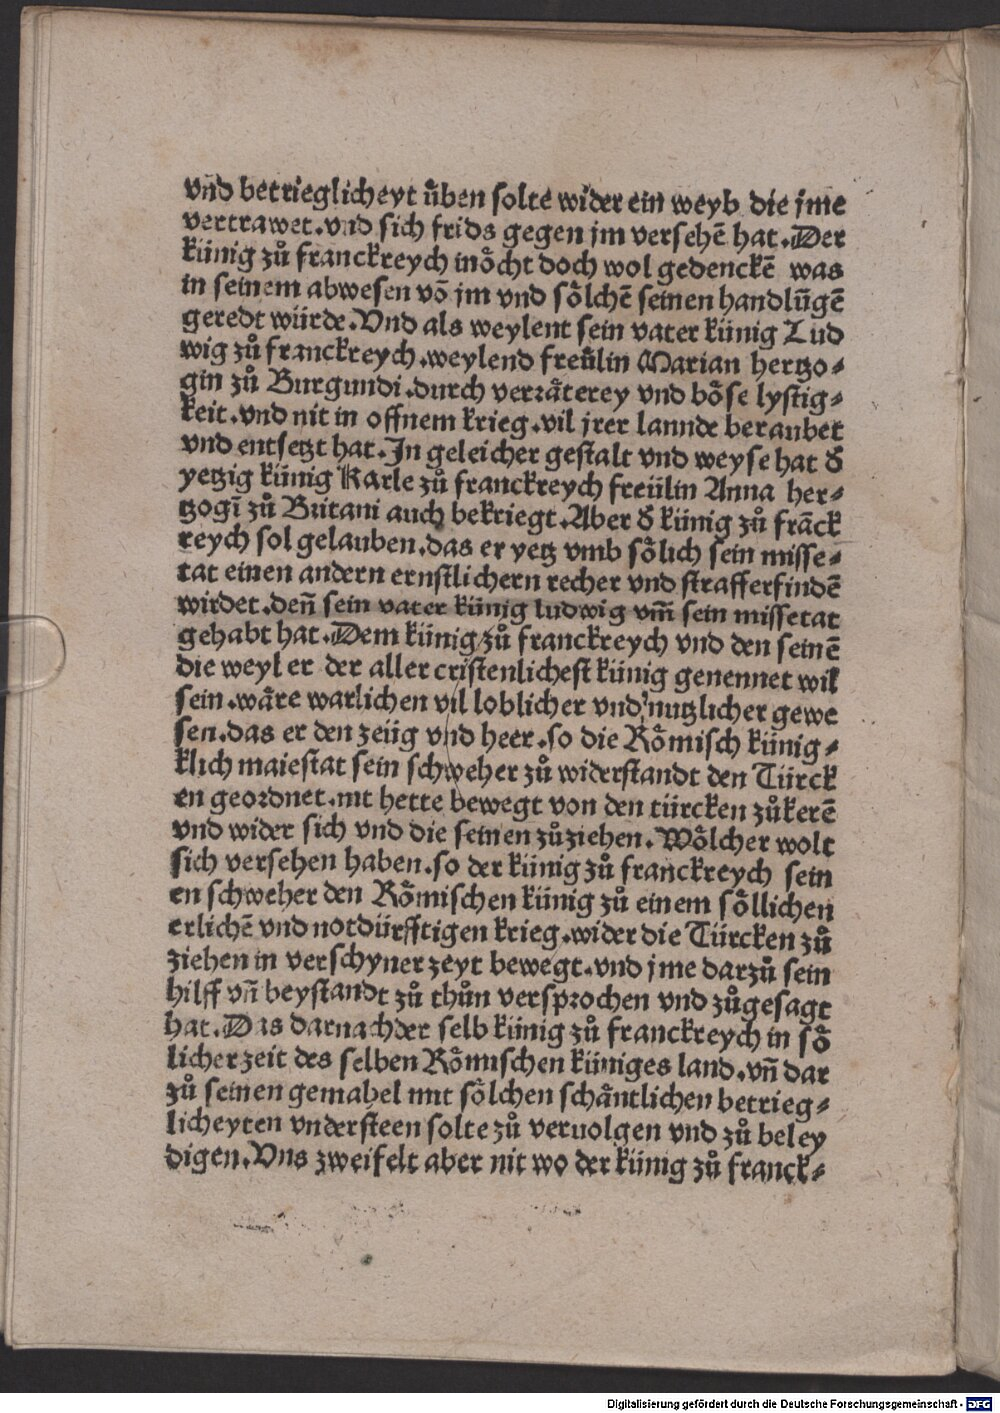 vnd betrieglicheyt ůben solte wider ein weyb die jme
vertrawet.vnd sich frids gegen jm versehē hat.Der
künig zů franckreych möcht doch wol gedenckē was
in seinem abwesen vō jm vnd sölchē seinen handlūgē
geredt würde.Vnd als weylent sein vater künig Lud
wig zů franckreych.weylend freülin Marian hertzo⸗
gin zů Burgundi.durch verräterey vnd böse lystig⸗
keit.vnd nit in offnem krieg.vil jrer lannde beraubet
vnd entsetzt hat.In geleicher gestalt vnd weyse hat d̕
yetzig künig Karle zů franckreych freülin Anna her⸗
tzogī zů Britani auch bekriegt.Aber d̕ künig zů frāck
reych sol gelauben.das er yetz vmb sölich sein misse⸗
tat einen andern ernstlichern recher vnd strafferfindē
wirdet.deñ sein vater künig ludwig vm̄ sein missetat
gehabt hat.Dem künig zů franckreych vnd den seinē
die weyl er der aller cristenlichest künig genennet wil
sein.wäre warlichen vil loblicher vnd nutzlicher gewe
sen.das er den zeüg vnd heer.so die Römisch künig⸗
klich maiestat sein schweher zů widerstandt den Türck
en geordnet.nit hette bewegt von den türcken zůkerē
vnd wider sich vnd die seinen zůziehen.Wölcher wolt
sich versehen haben.so der künig zů franckreych sein
en schweher den Römischen künig zů einem söllichen
erlichē vnd notdürfftigen krieg.wider die Türcken zů
ziehen in verschyner zeyt bewegt.vnd jme darzů sein
hilff vñ beystandt zů thůn versprochen vnd zůgesagt
hat.Das darnach der selb künig zů franckreych in sö
licher zeit des selben Römischen küniges land.vñ dar
zů seinen gemahel mit sölchen schäntlichen betrieg⸗
licheyten vndersteen solte zů veruolgen vnd zů beley
digen.Vns zweifelt aber nit wo der künig zů franck⸗
Digitalisierung gefördert durch die Deutsche Forschungsgemeinschaft - DFG